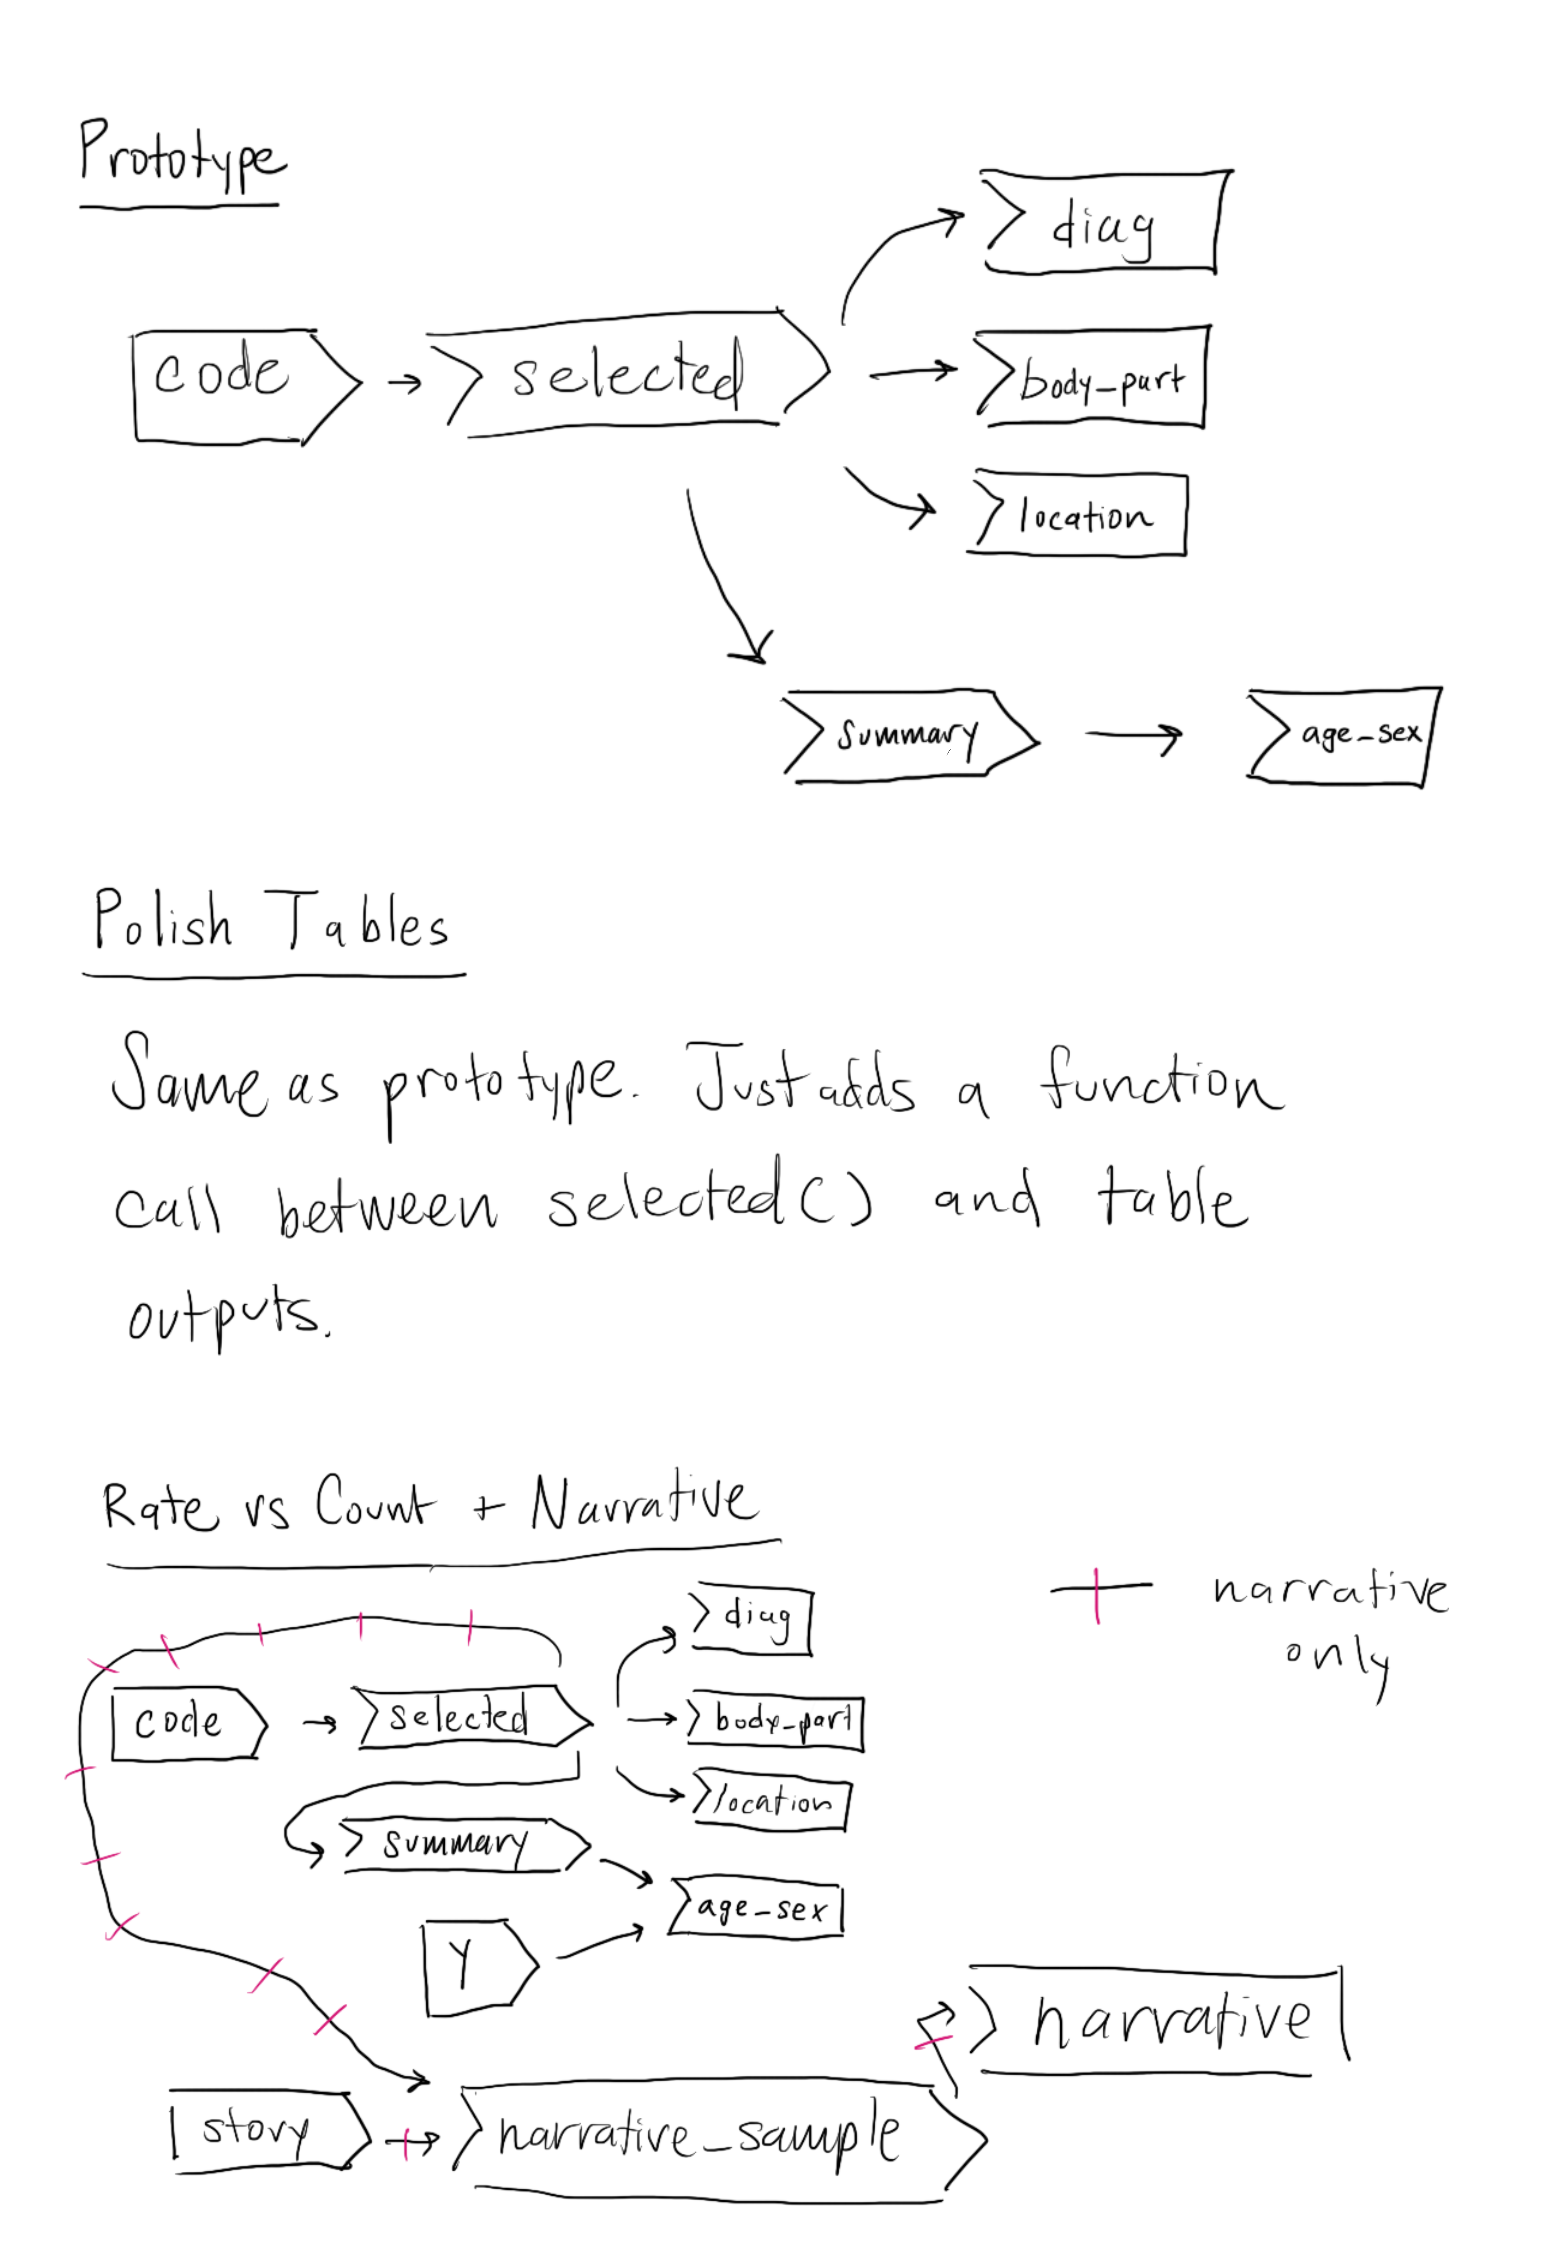 Prototype
diag
code
selected
body_part
location
summary
age_sex
Polish Tables
Same as prototype. Just adds a function
call between selected() and table
outputs.
Rate vs Count + Narrative
narrative
only
diag
code
selected
body_part
location
summary
age_sex
Y
narrative
story
narrative_sample